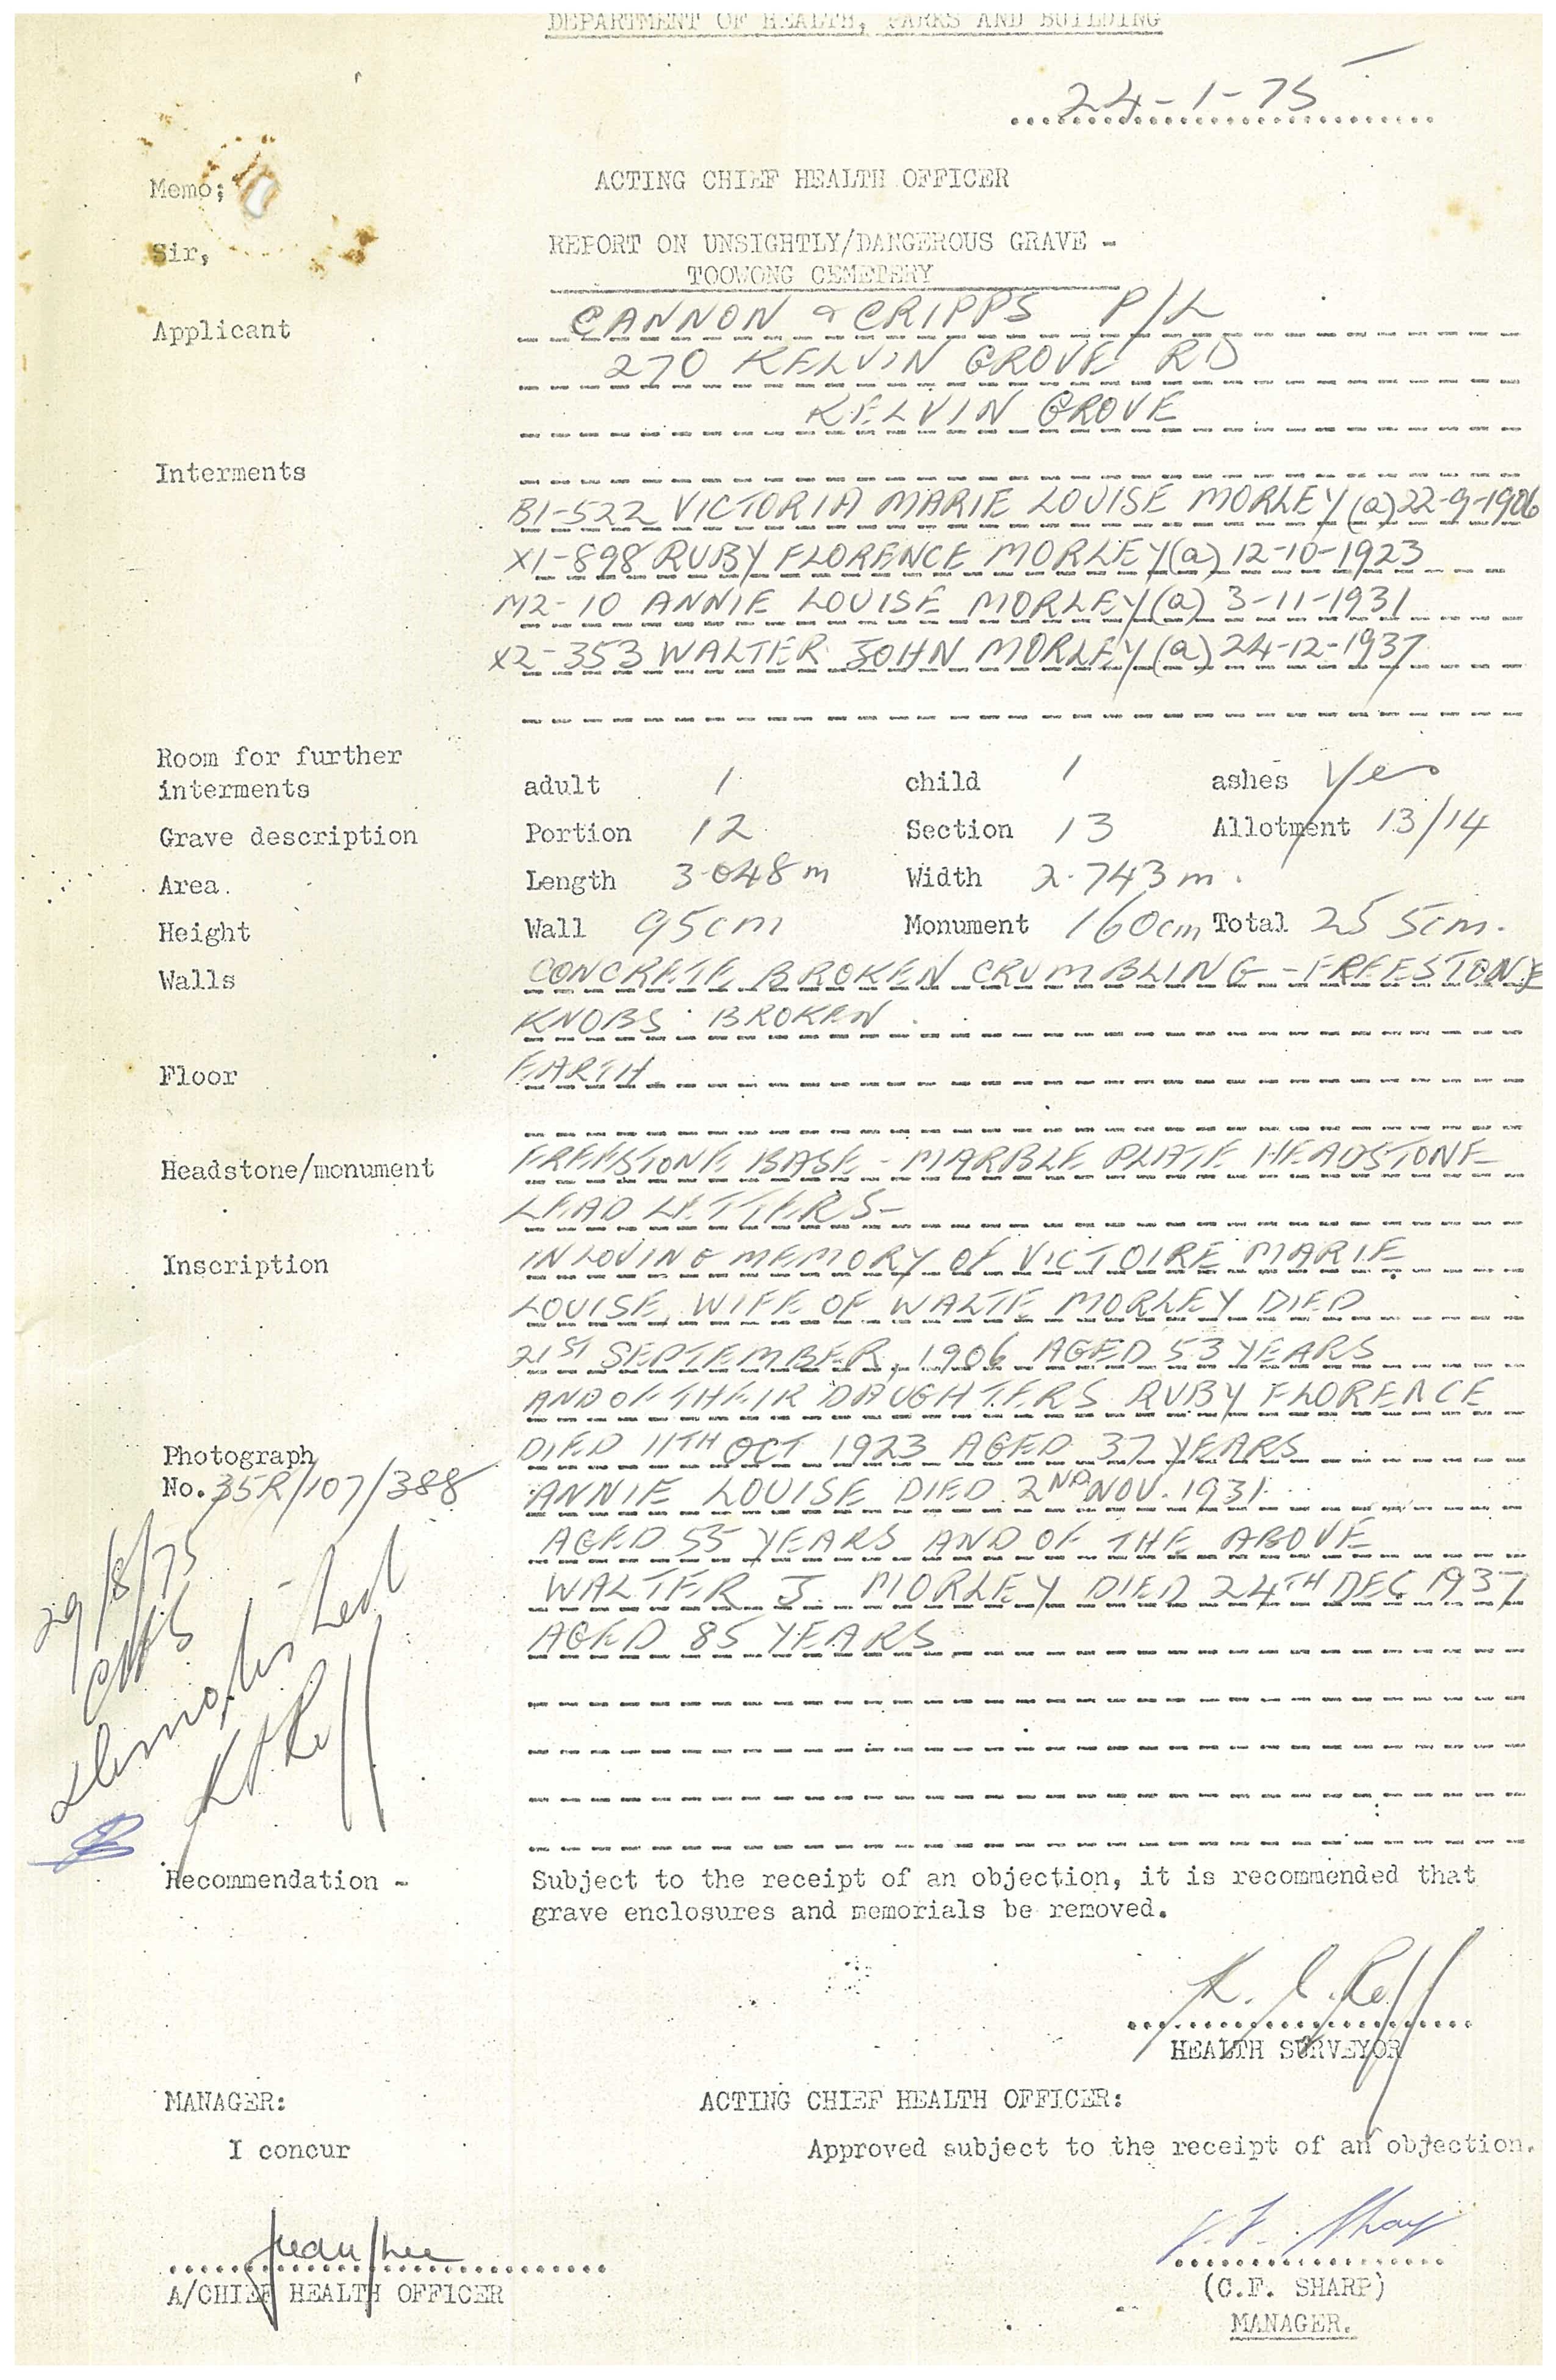 DEPARTMENT OF HEALTH, PARKS AND BUILDING
24-1-75
Memo; ACTING CHIEF HEALTH OFFICER
Sir, REPORT ON UNSIGHTLY/DANGEROUS GRAVE -
TOOWONG CEMETERY
Applicant CANNON & CRIPPS P/L
270 KELVIN GROVE RD
KELVIN GROVE
Interments
B1-522 VICTORIA MARIE LOUISE MORLEY (a) 22-9-1906
X1-898 RUBY FLORENCE MORLEY (a) 12-10-1923
M2-10 ANNIE LOUISE MORLEY (a) 3-11-1931
X2-353 WALTER JOHN MORLEY (a) 24-12-1937
Room for further
interments adult 1 child 1 ashes Yes
Grave description Portion 12 Section 13 Allotment 13/14
Area. Length 3.048 m Width 2.743 m.
Height Wall 95cm Monument 160cm Total 255cm.
Walls CONCRETE BROKEN CRUMBLING - FREESTONE
KNOBS BROKEN
Floor EARTH
Headstone/monument FREESTONE BASE - MARBLE PLATE HEADSTONE
LEAD LETTERS-
Inscription IN LOVING MEMORY OF VICTOIRE MARIE
LOUISE, WIFE OF WALTE MORLEY DIED
21ST SEPTEMBER, 1906 AGED 53 YEARS
AND OF THEIR DAUGHTERS RUBY FLORENCE
Photograph DIED 11TH OCT 1923 AGED 37 YEARS
No. 35R/107/388 ANNIE LOUISE DIED 2ND NOV. 1931
AGED 55 YEARS AND OF THE ABOVE
WALTER J. MORLEY DIED 24TH DEC 1937
AGED 85 YEARS
29/8/75
Recommendation - Subject to the receipt of an objection, it is recommended that
grave enclosures and memorials be removed.
HEALTH SURVEYOR
MANAGER: ACTING CHIEF HEALTH OFFICER:
I concur Approved subject to the receipt of an objection.
A/CHIEF HEALTH OFFICER (C.F. SHARP)
MANAGER.